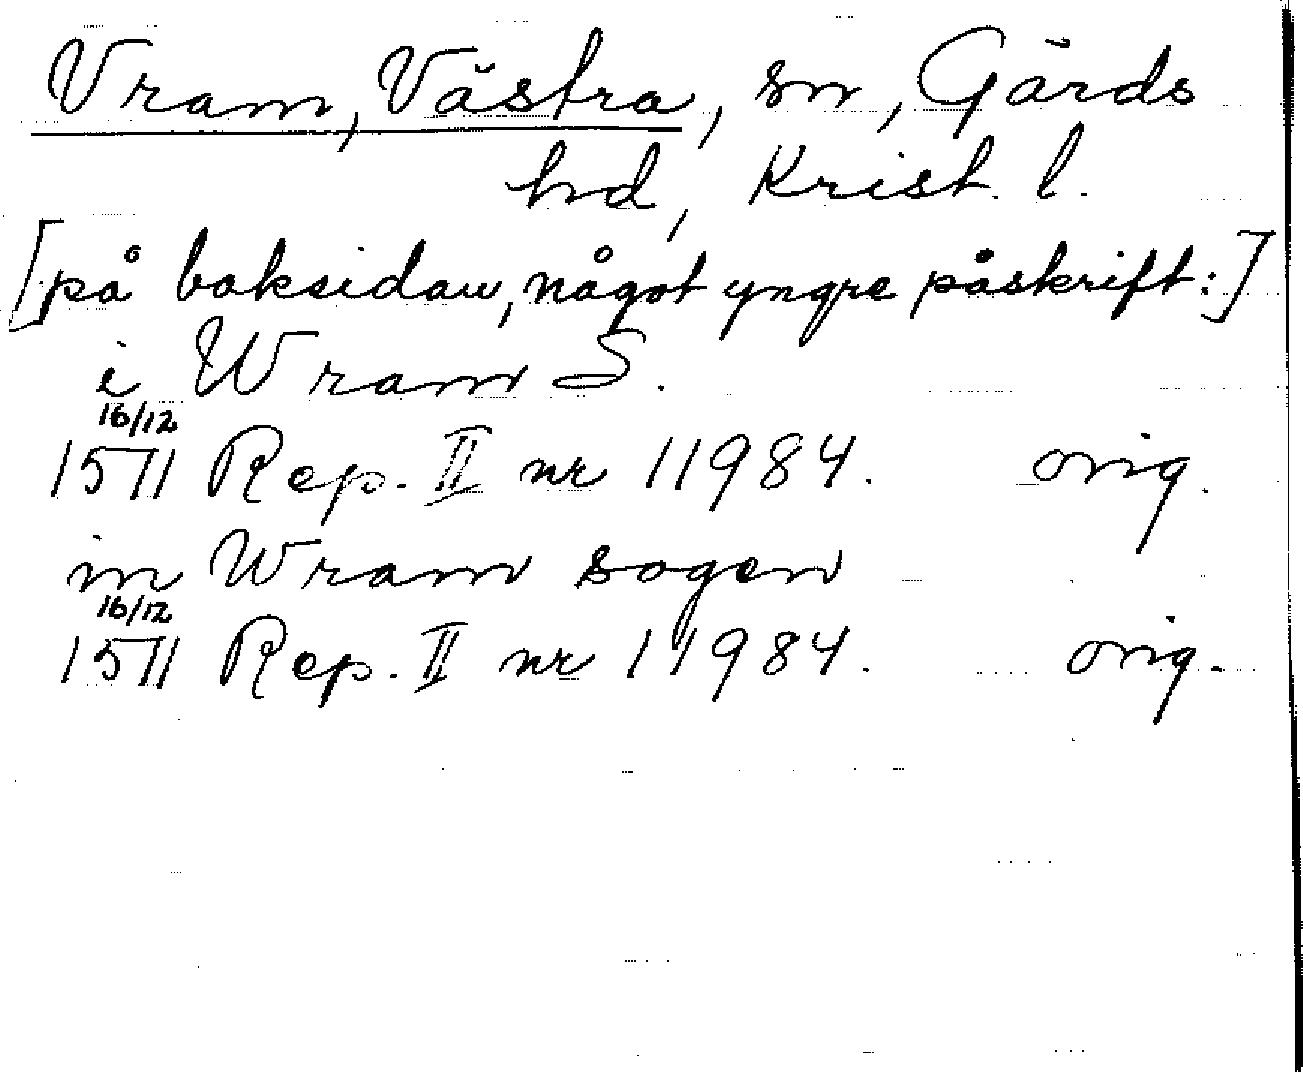 Vram, Västra, sn, Gärds
hd, Krist. l.
[på baksidan, något yngre påskrift:]
i Wram S.
16/12
1571 Rep. II nr 11984. orig.
in Wram sogen
16/12
1571 Rep. II nr 11984. orig.